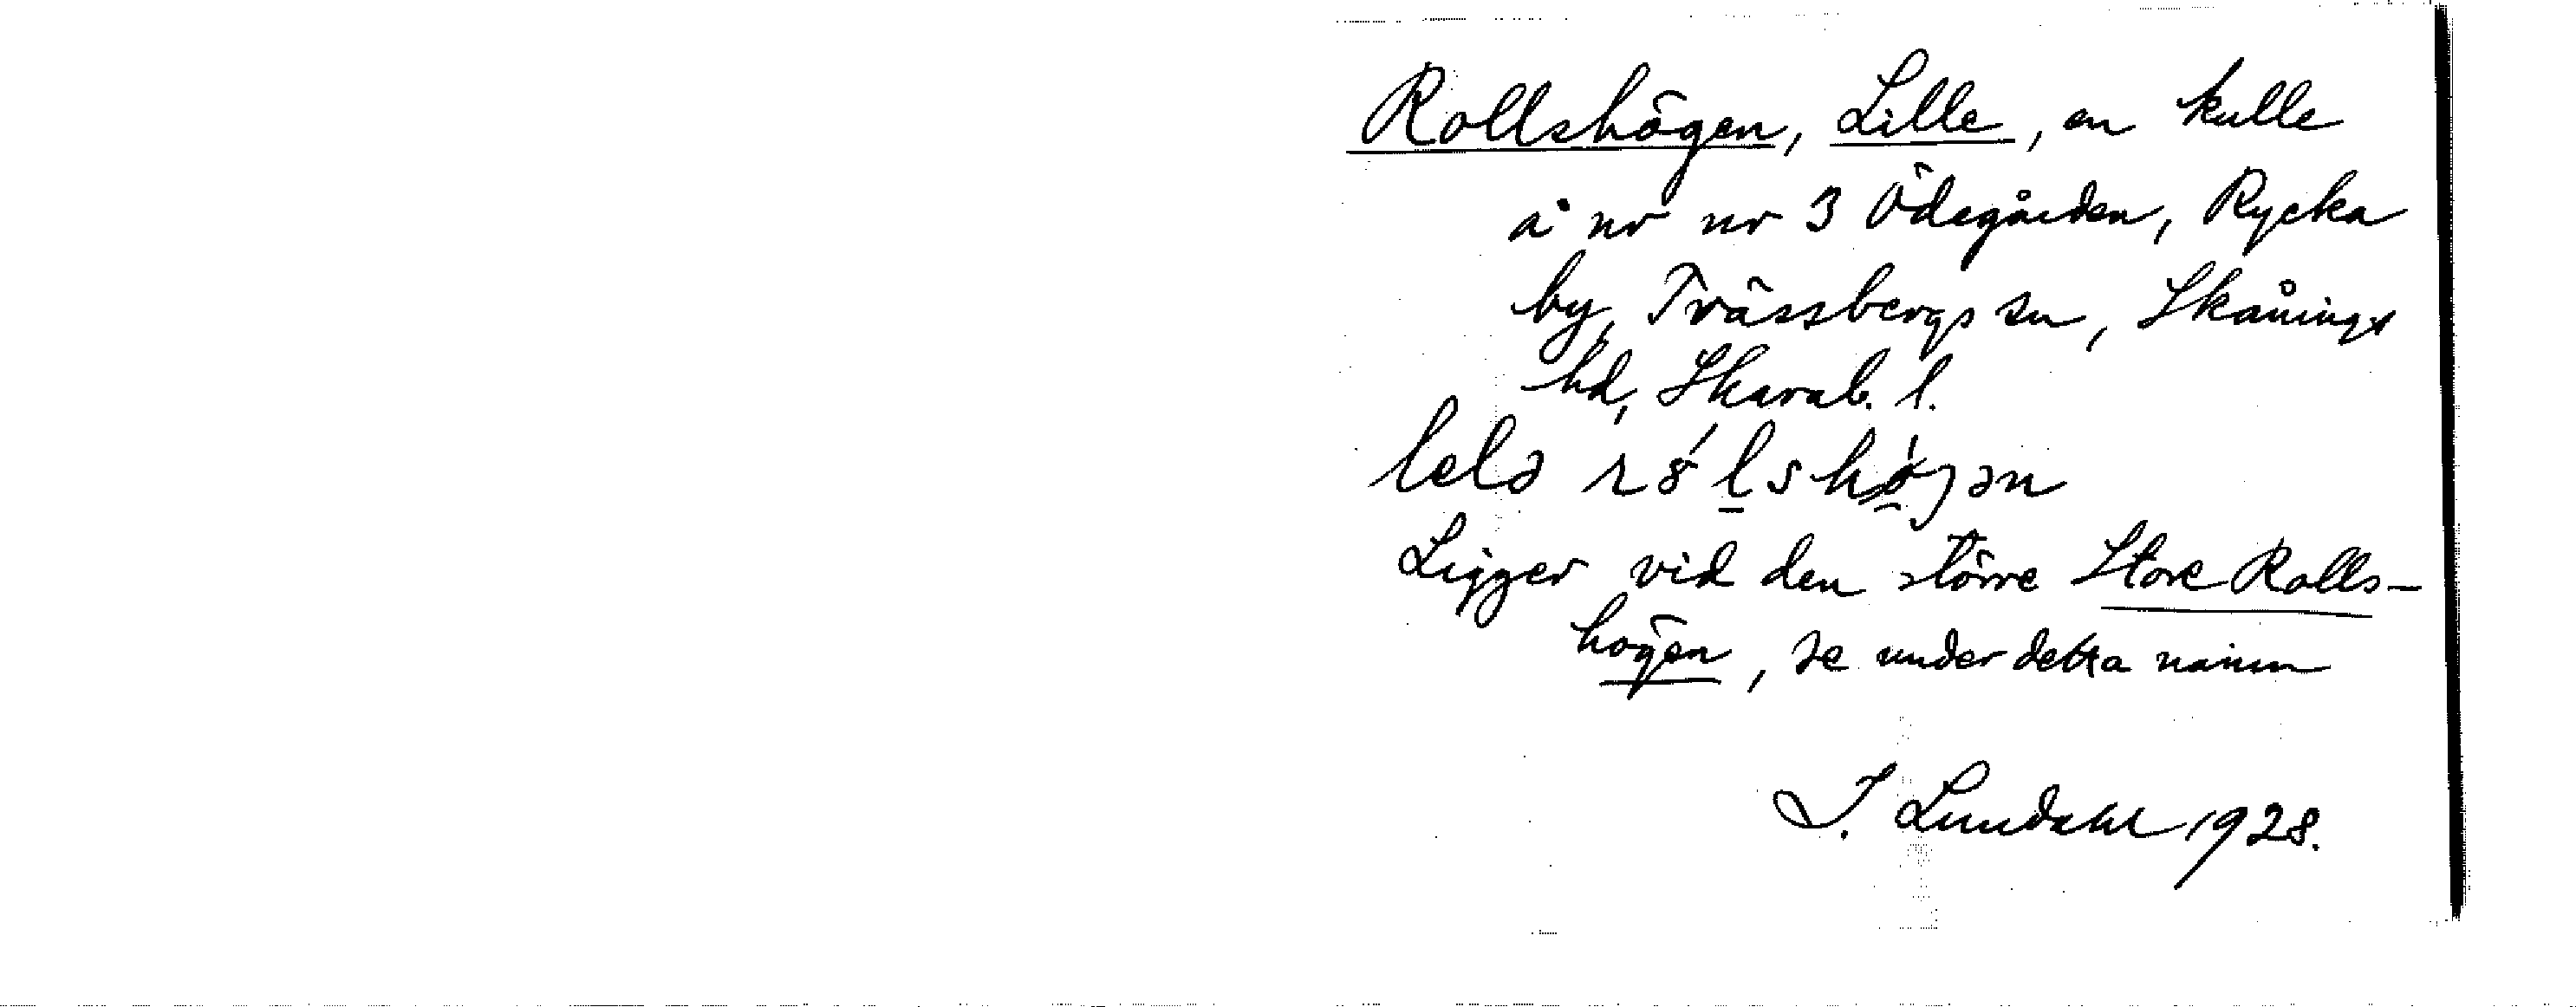 Rollshögen, Lille, en kulle
å nr nr 3 Ödegården, Rycka
by, Trässbergs sn, Skånings
hd, Skarab. l.
lelə
Ligger vid den större Store Rolls-
högen, se under detta namn
I. Lundahl 1928.